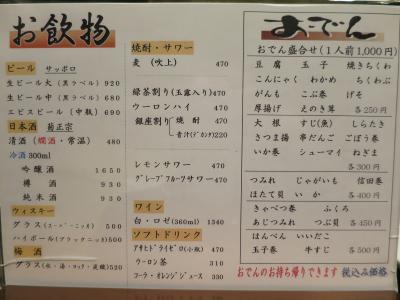 お飲物
ビール サッポロ
生ビール大(黒ラベル) 920
生ビール中(黒ラベル) 680
エビスビール(中瓶) 690
日本酒 菊正宗
清酒(燗酒・常温) 480
冷酒 300ml
吟醸酒 1650
樽酒 930
純米酒 930
ウィスキー
グラス(スーパーニッカ) 500
ハイボール(ブラックニッカ) 500
梅酒
グラス(水・湯・ロック・炭酸) 520
焼酎・サワー
麦(吹上) 470
緑茶割り(玉露入り) 470
ウーロンハイ 470
銀座割り 焼酎 470
青汁(デカンタ) 220
レモンサワー 470
グレープフルーツサワー 470
ワイン
白・ロゼ(360ml) 1340
ソフトドリンク
アサヒドライゼロ(小瓶) 470
ウーロン茶 330
コーラ・オレンジジュース 330
おでん
おでん盛合せ(1人前1,000円)
豆腐 玉子 焼きちくわ
こんにゃく わかめ ちくわぶ
がんも こぶ巻 げそ
厚揚げ えのき茸 各250円
大根 すじ(魚) しらたき
さつま揚 串だんご ごぼう巻
いか巻 シューマイ ねぎま
各300円
つみれ じゃがいも 信田巻
ほたて貝 いか 各400円
きゃべつ巻 ふくろ
あじつみれ つぶ貝 各450円
はんぺん いいだこ
玉子巻 牛すじ 各500円
おでんのお持ち帰りできます 税込み価格